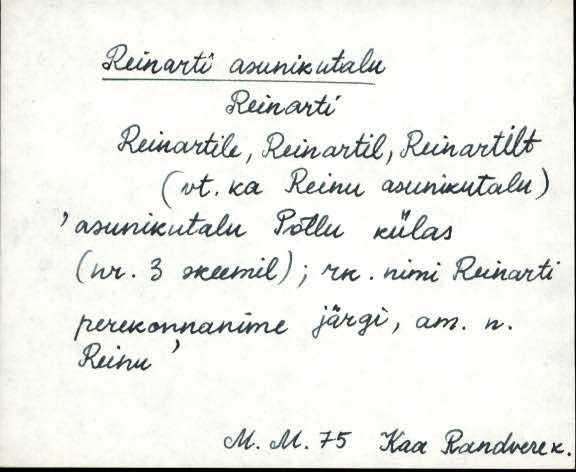 Reinarti asunikutalu
Reinarti
Reinartile, Reinartil, Reinartilt
(vt. ka Reinu asunikutalu)
'asunikutalu Põllu külas
(nr. 3 skeemil); rk. nimi Reinarti
perekonnanime järgi, am. n.
Reinu'
M. M. 75 Kaa Randverek.